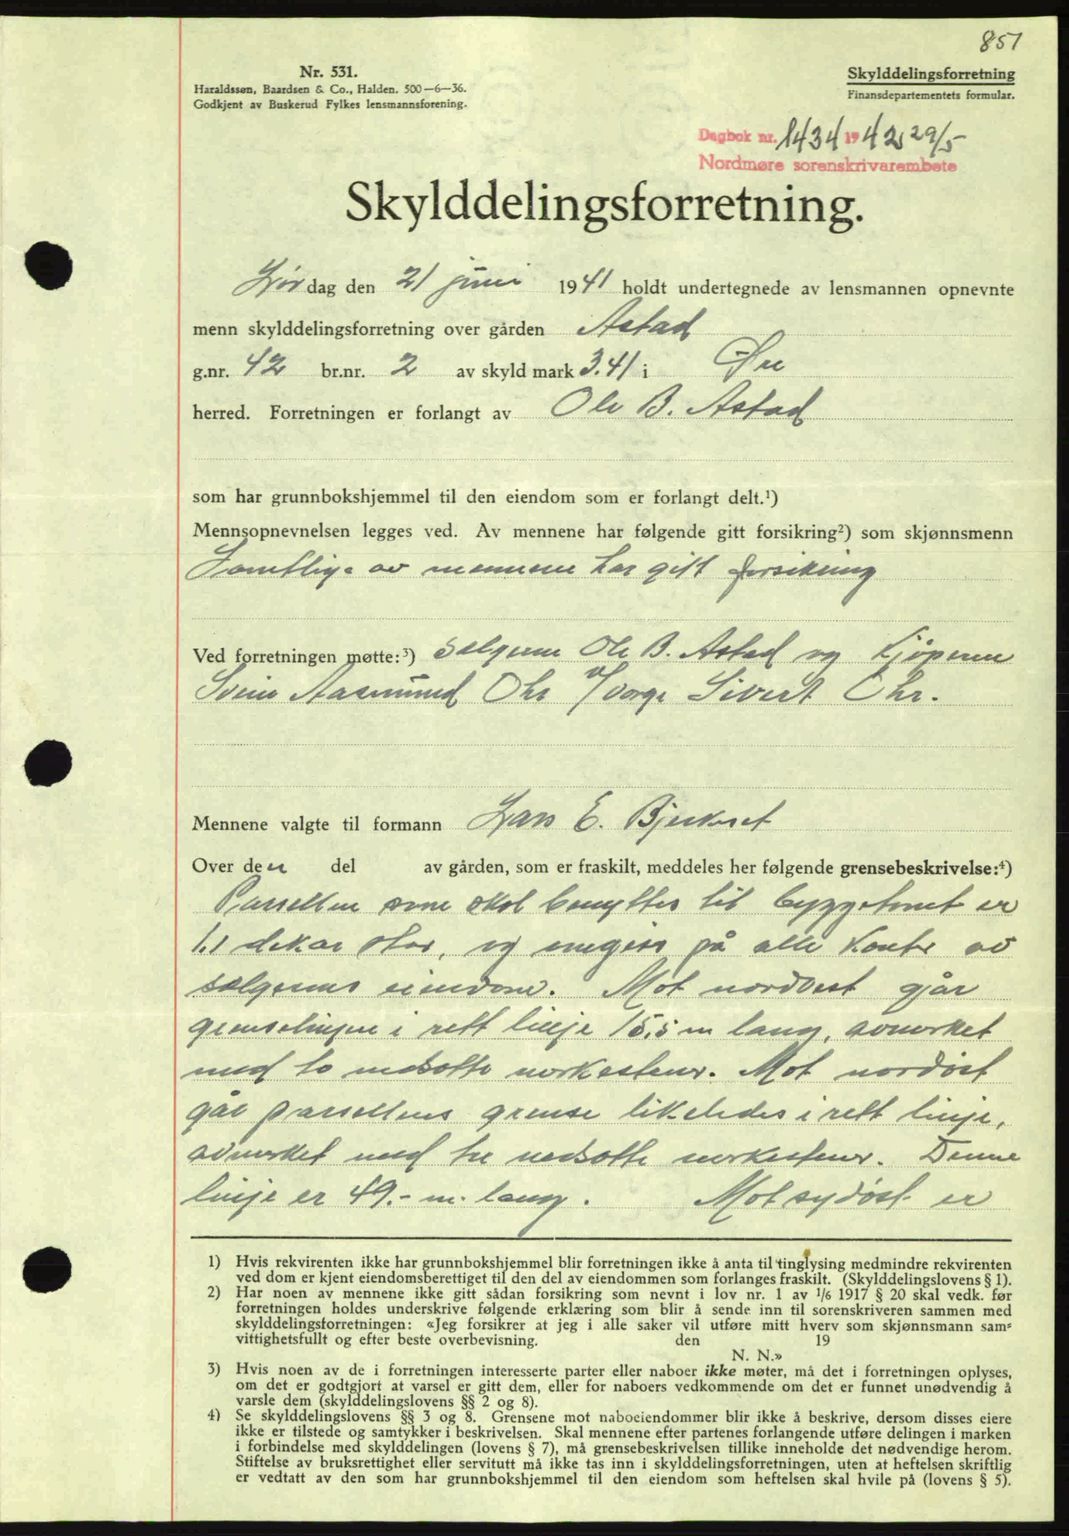 851
Nr. 531.
Haraldssøn, Baardsen & Co., Halden. 500—6—36.
Godkjent av Buskerud Fylkes lensmannsforening.
Skylddelingsforretning
Finansdepartementets formular.
Dagbok nr. 1434 1942 29/5
Nordmøre sorenskrivarembete
Skylddelingsforretning.
Lørdag den 21 juni 1941 holdt undertegnede av lensmannen opnevnte
menn skylddelingsforretning over gården Astad
g.nr. 42 br.nr. 2 av skyld mark 3.41 i Øre
herred. Forretningen er forlangt av Ole B. Astad
som har grunnbokshjemmel til den eiendom som er forlangt delt.¹)
Mennsopnevnelsen legges ved. Av mennene har følgende gitt forsikring²) som skjønnsmenn
Samtlige av mennene har gitt forsikring
Ved forretningen møtte:³) selgeren Ole B. Astad og kjøperen
Svein Aasmund Ohr v/verge Sivert Ohr.
Mennene valgte til formann Lars E. Bjerkeset
Over den del av gården, som er fraskilt, meddeles her følgende grensebeskrivelse:⁴)
Parsellen som skal benyttes til byggetomt er
1.1 dekar stor, og omgis på alle kanter av
selgerens eiendom. Mot nordvest går
grenselinjen i rett linje 15,5 m lang, avmerket
med to nedsatte merkestener. Mot nordøst
går parsellens grense likeledes i rett linje,
avmerket med tre nedsatte merkestener. Denne
linje er 49.- m. lang. Mot sydøst er
1) Hvis rekvirenten ikke har grunnbokshjemmel blir forretningen ikke å anta til tinglysing medmindre rekvirenten
ved dom er kjent eiendomsberettiget til den del av eiendommen som forlanges fraskilt. (Skylddelingslovens § 1).
2) Har noen av mennene ikke gitt sådan forsikring som nevnt i lov nr. 1 av 1/6 1917 § 20 skal vedk. før
forretningen holdes underskrive følgende erklæring som blir å sende inn til sorenskriveren sammen med
skylddelingsforretningen: «Jeg forsikrer at jeg i alle saker vil utføre mitt hverv som skjønnsmann sam-
vittighetsfullt og efter beste overbevisning. den 19
N. N.»
3) Hvis noen av de i forretningen interesserte parter eller naboer ikke møter, må det i forretningen oplyses,
om det er godtgjort at varsel er gitt dem, eller for naboers vedkommende om det er funnet unødvendig å
varsle dem (skylddelingslovens §§ 2 og 8).
4) Se skylddelingslovens §§ 3 og 8. Grensene mot naboeiendommer blir ikke å beskrive, dersom disses eiere
ikke er tilstede og samtykker i beskrivelsen. Skal mennene efter partenes forlangende utføre delingen i marken
i forbindelse med skylddelingen (lovens § 7), må grensebeskrivelsen tillike inneholde det nødvendige herom.
Stiftelse av bruksrettighet eller servitutt må ikke tas inn i skylddelingsforretningen, uten at heftelsen skriftlig
er vedtatt av den som har grunnbokshjemmel til den eiendom som heftelsen skal hvile på (lovens § 5).